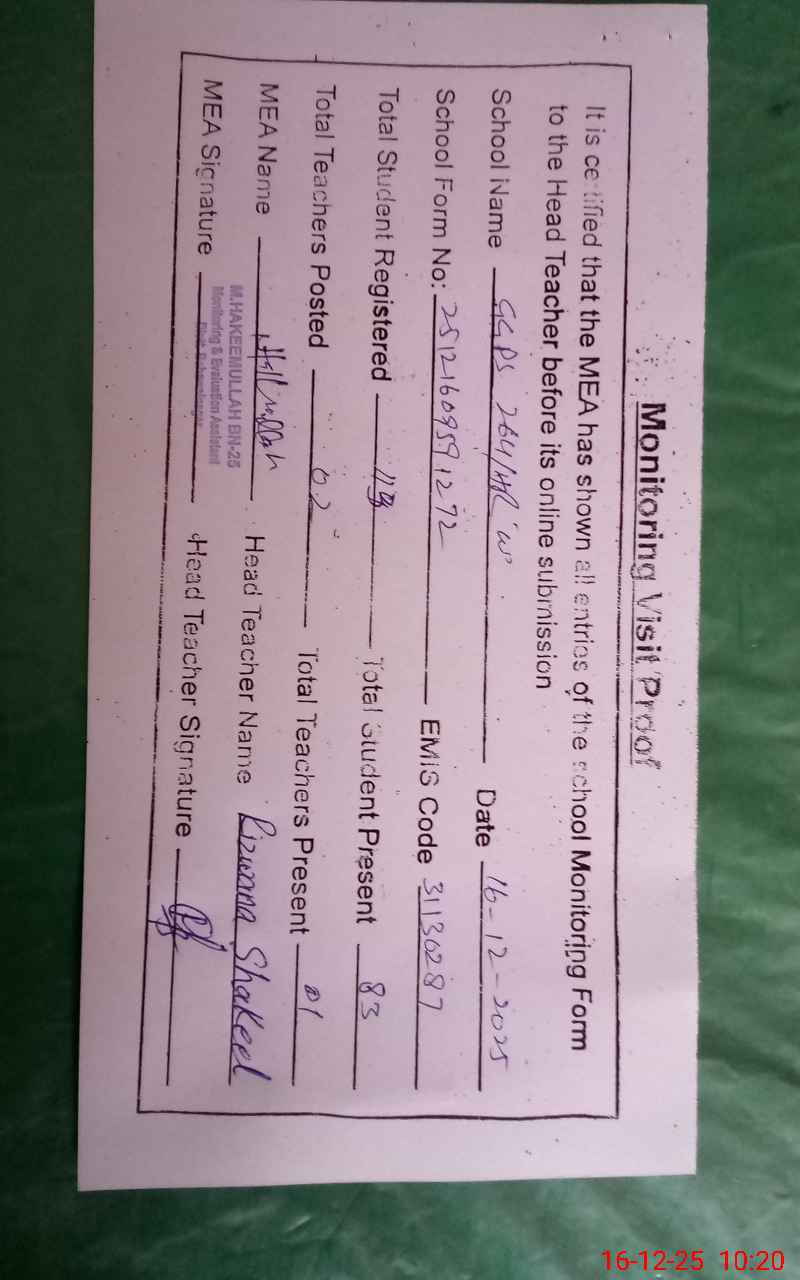 Monitoring Visit Proof
It is certified that the MEA has shown all entries of the school Monitoring Form
to the Head Teacher before its online submission
School Name GGPS 264/HR 'w' Date 16-12-2025
School Form No: 25121609591272 EMIS Code 31130287
Total Student Registered Total Student Present 83
Total Teachers Posted 02 Total Teachers Present 01
MEA Name Head Teacher Name Rizwana Shakeel
M.HAKEEMULLAH BN-25
Monitoring & Evaluation Assistant
MEA Signature Head Teacher Signature
16-12-25 10:20